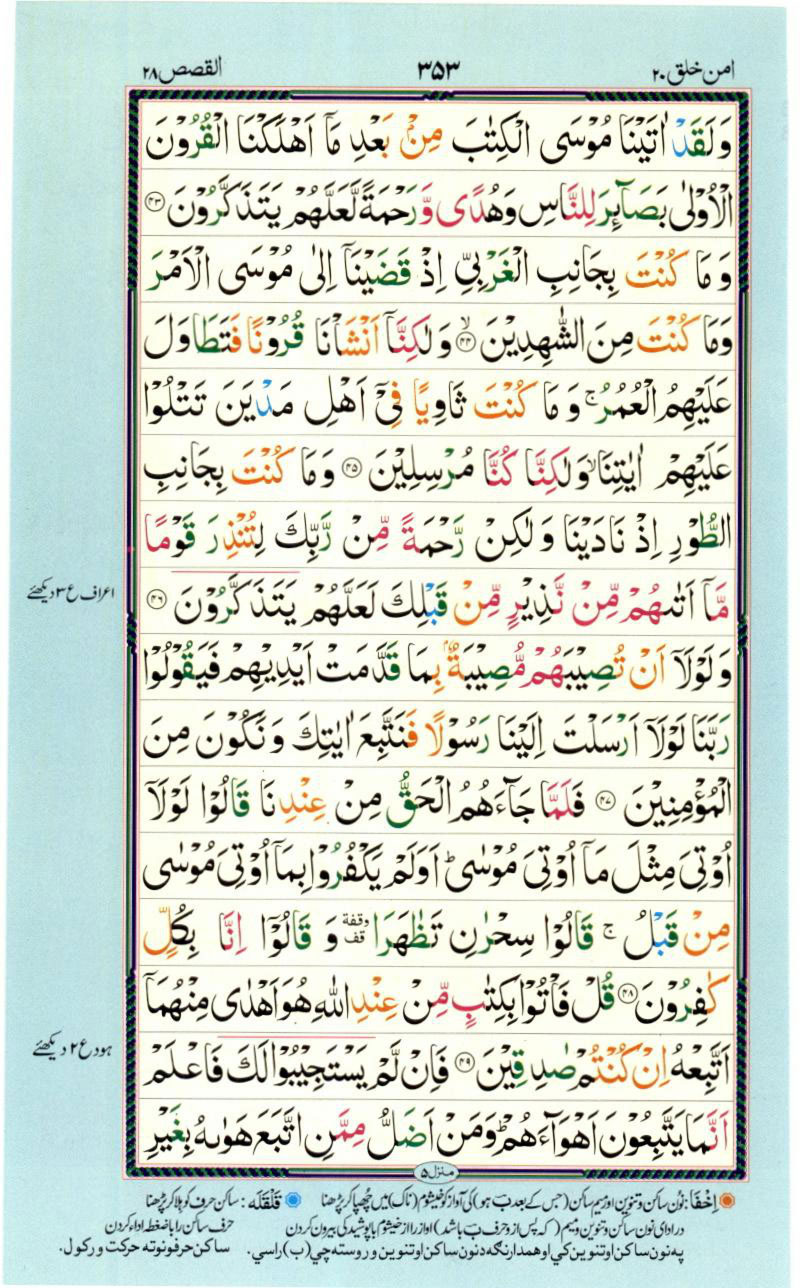 امن خلق ۲۰
۳۵۳
القصص ۲۸
وَلَقَدْ اٰتَيْنَا مُوْسَى الْكِتٰبَ مِنْۢ بَعْدِ مَاۤ اَهْلَكْنَا الْقُرُوْنَ
الْاُوْلٰى بَصَآئِرَ لِلنَّاسِ وَهُدًى وَّرَحْمَةً لَّعَلَّهُمْ يَتَذَكَّرُوْنَ ۴۳
وَمَا كُنْتَ بِجَانِبِ الْغَرْبِيِّ اِذْ قَضَيْنَاۤ اِلٰى مُوْسَى الْاَمْرَ
وَمَا كُنْتَ مِنَ الشّٰهِدِيْنَ ۴۴ۙ وَلٰكِنَّاۤ اَنْشَاْنَا قُرُوْنًا فَتَطَاوَلَ
عَلَيْهِمُ الْعُمُرُۚ وَمَا كُنْتَ ثَاوِيًا فِيْۤ اَهْلِ مَدْيَنَ تَتْلُوْا
عَلَيْهِمْ اٰيٰتِنَاۙ وَلٰكِنَّا كُنَّا مُرْسِلِيْنَ ۴۵ وَمَا كُنْتَ بِجَانِبِ
الطُّوْرِ اِذْ نَادَيْنَا وَلٰكِنْ رَّحْمَةً مِّنْ رَّبِّكَ لِتُنْذِرَ قَوْمًا
مَّاۤ اَتٰىهُمْ مِّنْ نَّذِيْرٍ مِّنْ قَبْلِكَ لَعَلَّهُمْ يَتَذَكَّرُوْنَ ۴۶
اعراف ع ۳ دیکھئے
وَلَوْلَاۤ اَنْ تُصِيْبَهُمْ مُّصِيْبَةٌۢ بِمَا قَدَّمَتْ اَيْدِيْهِمْ فَيَقُوْلُوْا
رَبَّنَا لَوْلَاۤ اَرْسَلْتَ اِلَيْنَا رَسُوْلًا فَنَتَّبِعَ اٰيٰتِكَ وَنَكُوْنَ مِنَ
الْمُؤْمِنِيْنَ ۴۷ فَلَمَّا جَآءَهُمُ الْحَقُّ مِنْ عِنْدِنَا قَالُوْا لَوْلَاۤ
اُوْتِيَ مِثْلَ مَاۤ اُوْتِيَ مُوْسٰىؕ اَوَلَمْ يَكْفُرُوْا بِمَاۤ اُوْتِيَ مُوْسٰى
مِنْ قَبْلُۚ قَالُوْا سِحْرٰنِ تَظٰهَرَا وقفة قف وَقَالُوْۤا اِنَّا بِكُلٍّ
كٰفِرُوْنَ ۴۸ قُلْ فَاْتُوْا بِكِتٰبٍ مِّنْ عِنْدِ اللّٰهِ هُوَ اَهْدٰى مِنْهُمَاۤ
اَتَّبِعْهُ اِنْ كُنْتُمْ صٰدِقِيْنَ ۴۹ فَاِنْ لَّمْ يَسْتَجِيْبُوْا لَكَ فَاعْلَمْ
هود ع ۲ دیکھئے
اَنَّمَا يَتَّبِعُوْنَ اَهْوَآءَهُمْؕ وَمَنْ اَضَلُّ مِمَّنِ اتَّبَعَ هَوٰىهُ بِغَيْرِ
منزل ۵
اِخْفَا: نون ساکن و تنوین اور میم ساکن (جس کے بعد ب ہو) کی آواز کو خیشوم (ناک) میں چھپا کر پڑھنا قَلْقَلَه: ساکن حرف کو ہلا کر پڑھنا
در ادای نون ساکن و تنوین و میم (که پس از و حرف ب باشد) آواز را از خیشوم با پوشیدگی بیرون کردن حرف ساکن را با ضغطه اداء کردن
په نون ساکن او تنوین کي او همدارنگه د نون ساکن او تنوین وروسته چي (ب) راسي. ساکن حرفونو ته حرکت ورکول.